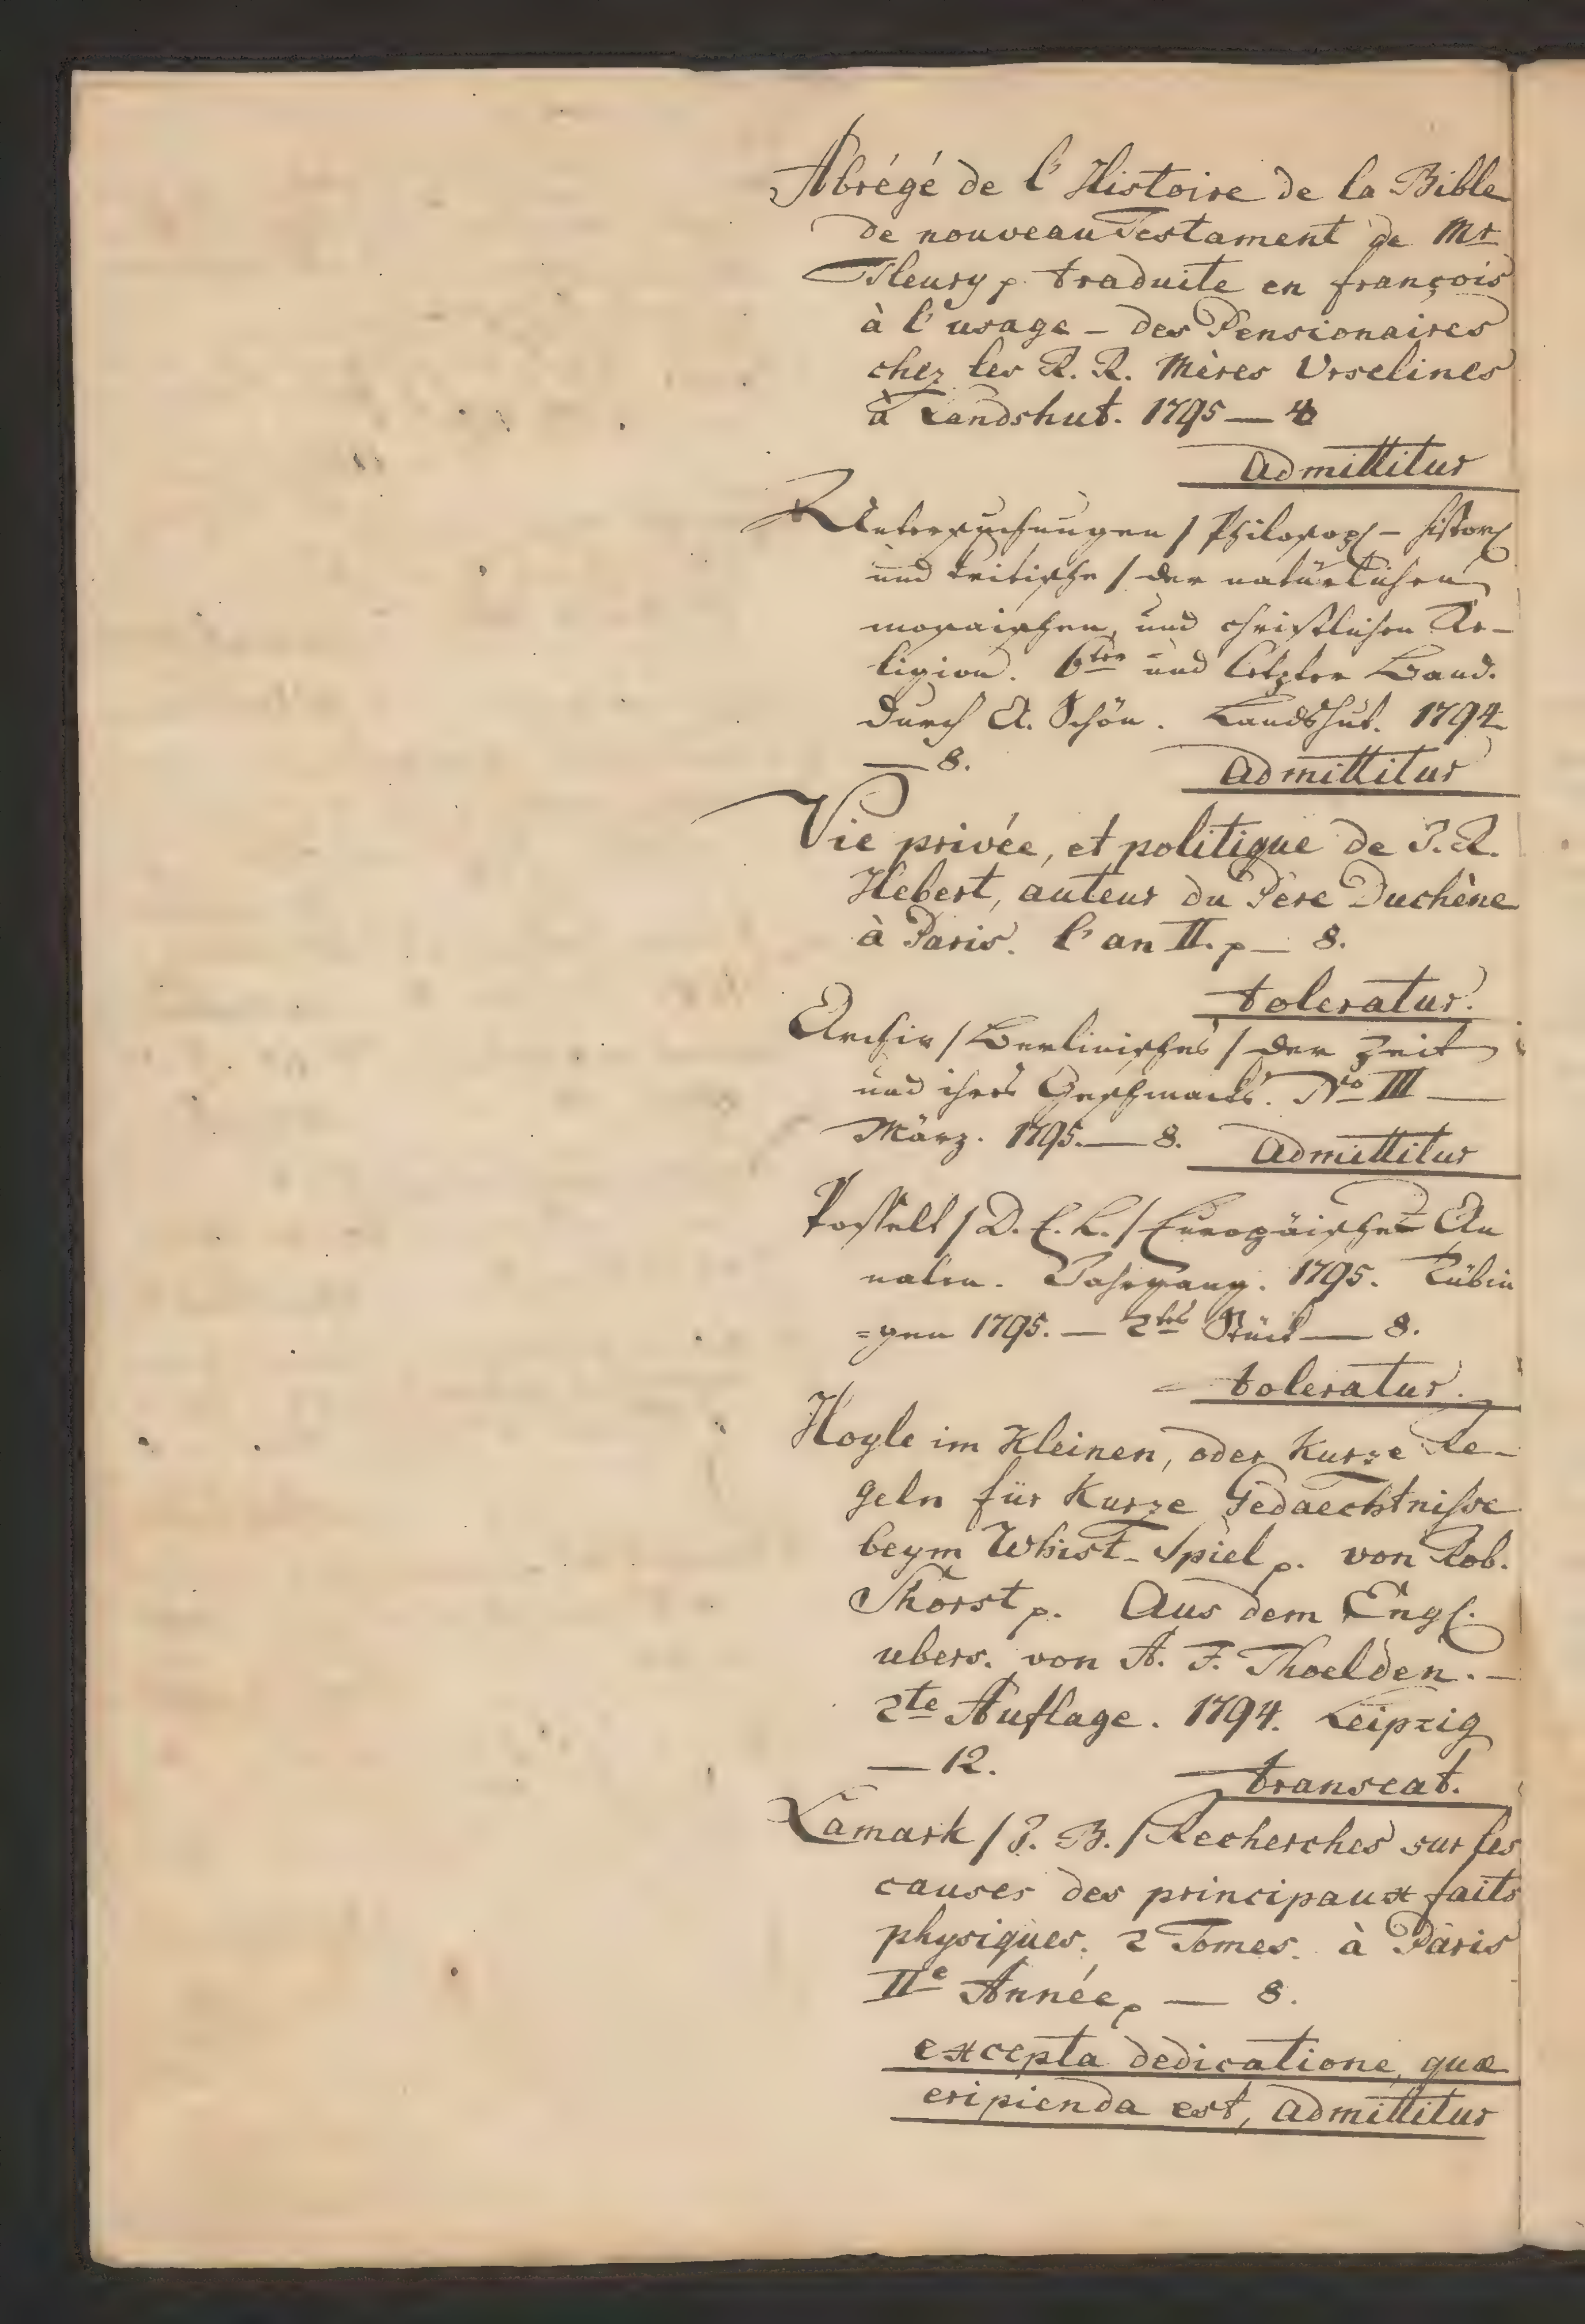 Abrégé de l'Histoire de la Bible
de nouveau Testament de Mr
Fleury p. traduite en françois
à l'usage – des Pensionaires
chez les R. R. Mères Urselines
à Landshut. 1795 — 4
Admittitur
Untersuchungen / Philosoph – histor
und kritische / der natürlichen
mosaischen, und christlichen Re–
ligion. 6ter und letzter Band.
durch A. Schön. Landshut. 1794
— 8.
Admittitur
Vie privée, et politique de J. R.
Hebert, auteur du Père Duchène
à Paris. l'an II. p — 8.
toleratur.
Archiv / Berlinisches / der Zeit
und ihres Geschmacks. No III —
März. 1795. — 8.
Admittitur
Posselt / D. E. L. / Europäische An
nalen. Jahrgang. 1795. Tübin
=gen 1795. — 2tes Stück — 8.
toleratur.
Hoyle im Kleinen, oder Kurze Re–
geln für Kurze Gedaechtnisse
beym Whist-Spiel p. von Rob.
Thorst p. Aus dem Engl.
ubers. von A. F. Thoelden. –
2te Auflage. 1794. Leipzig
— 12.
transeat.
Lamark / J. B. / Recherches sur les
causes des principaux faits
physiques. 2 Tomes. à Paris
IIe Année p — 8.
excepta dedicatione, quæ
eripienda est, Admittitur